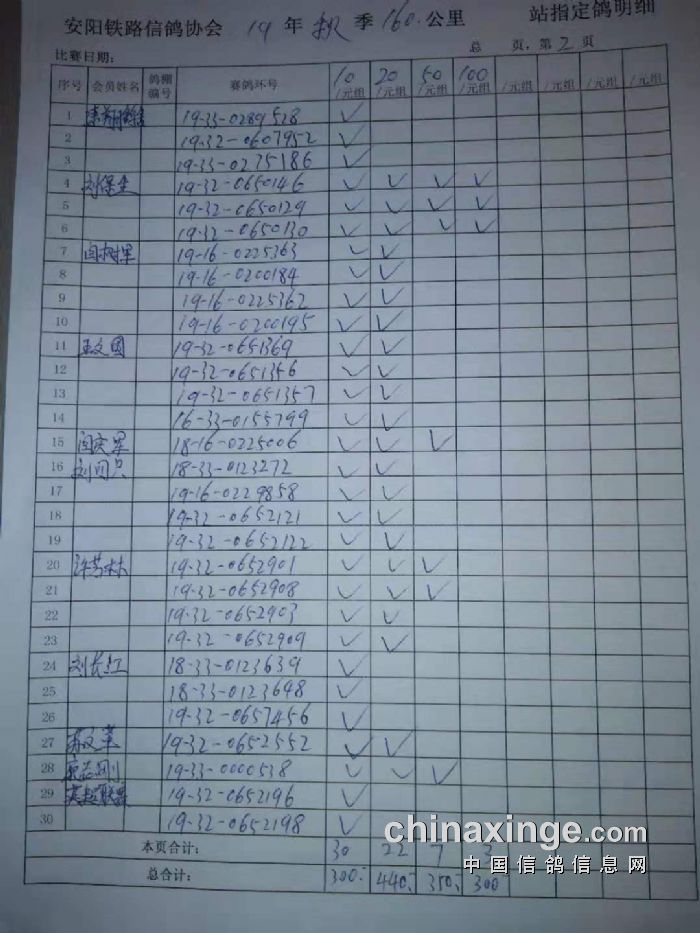 安阳铁路信鸽协会 19 年 秋 季 160 公里 站指定鸽明细
比赛日期: 总 页,第 2 页
序号 会员姓名 鸽棚编号 赛鸽环号 10/元组 20/元组 50/元组 100/元组 /元组 /元组 /元组 /元组
1 19-33-0289528 ✓
2 19-32-0607952 ✓
3 19-33-0275186 ✓
4 刘保全 19-32-0650146 ✓ ✓ ✓ ✓
5 19-32-0650129 ✓ ✓ ✓ ✓
6 19-32-0650130 ✓ ✓ ✓ ✓
7 闫树军 19-16-0225363 ✓ ✓
8 19-16-0200184 ✓ ✓
9 19-16-0225362 ✓ ✓
10 19-16-0200195 ✓ ✓
11 王文国 19-32-0651369 ✓ ✓
12 19-32-0651356 ✓ ✓
13 19-32-0651357 ✓ ✓
14 16-33-0155799 ✓ ✓
15 闫庆军 18-16-0225006 ✓ ✓ ✓
16 18-33-0123272 ✓ ✓
17 19-16-0229858 ✓ ✓
18 19-32-0652121 ✓ ✓
19 19-32-0652122 ✓ ✓
20 许芳林 19-32-0652901 ✓ ✓ ✓
21 19-32-0652908 ✓ ✓ ✓
22 19-32-0652903 ✓ ✓
23 19-32-0652909 ✓ ✓
24 刘长红 18-33-0123639 ✓
25 18-33-0123698 ✓
26 19-32-0657456 ✓
27 19-32-0652552 ✓ ✓
28 19-33-0000538 ✓ ✓ ✓
29 19-32-0652196 ✓
30 19-32-0652198 ✓
本页合计: 30 22 7 3
总合计: 300.- 440.- 350.- 300
chinaxinge.com
中国信鸽信息网